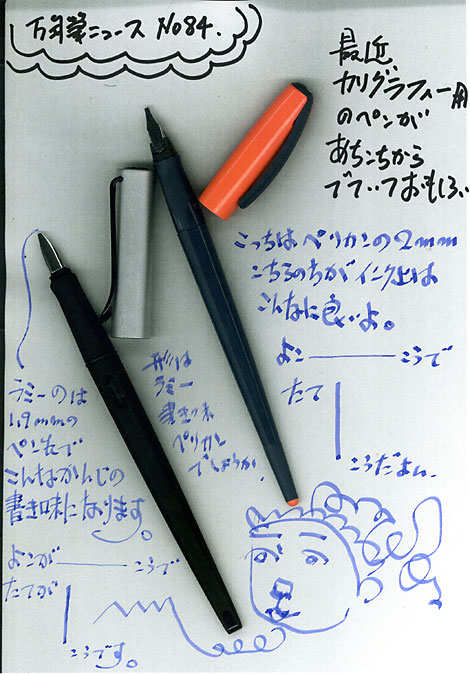 万年筆ニュース No84.
最近、
カリグラフィー用
のペンが
あちこちから
でていておもしろい
こっちはペリカンの2mm
こちらのちがインク出は
こんなに良いよ。
よこ こうで
たて
こうだよ。
形は
ラミー
書き味
ペリカン
でしょうか
ラミーのは
1.9mmの
ペン先で
こんなかんじの
書き味になります。
よこが こうで
たてが
こうです。